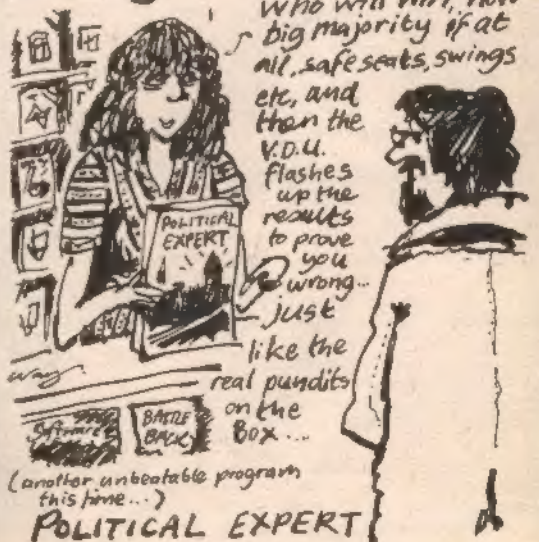 who will win, how
big majority if at
all, safe seats, swings
etc, and
then the
V.D.U.
flashes
up the
results
to prove
you
wrong...
just
like the
real pundits
on the
Box...
POLITICAL
EXPERT
Software
BACK
(another unbeatable program
this time...)
POLITICAL EXPERT